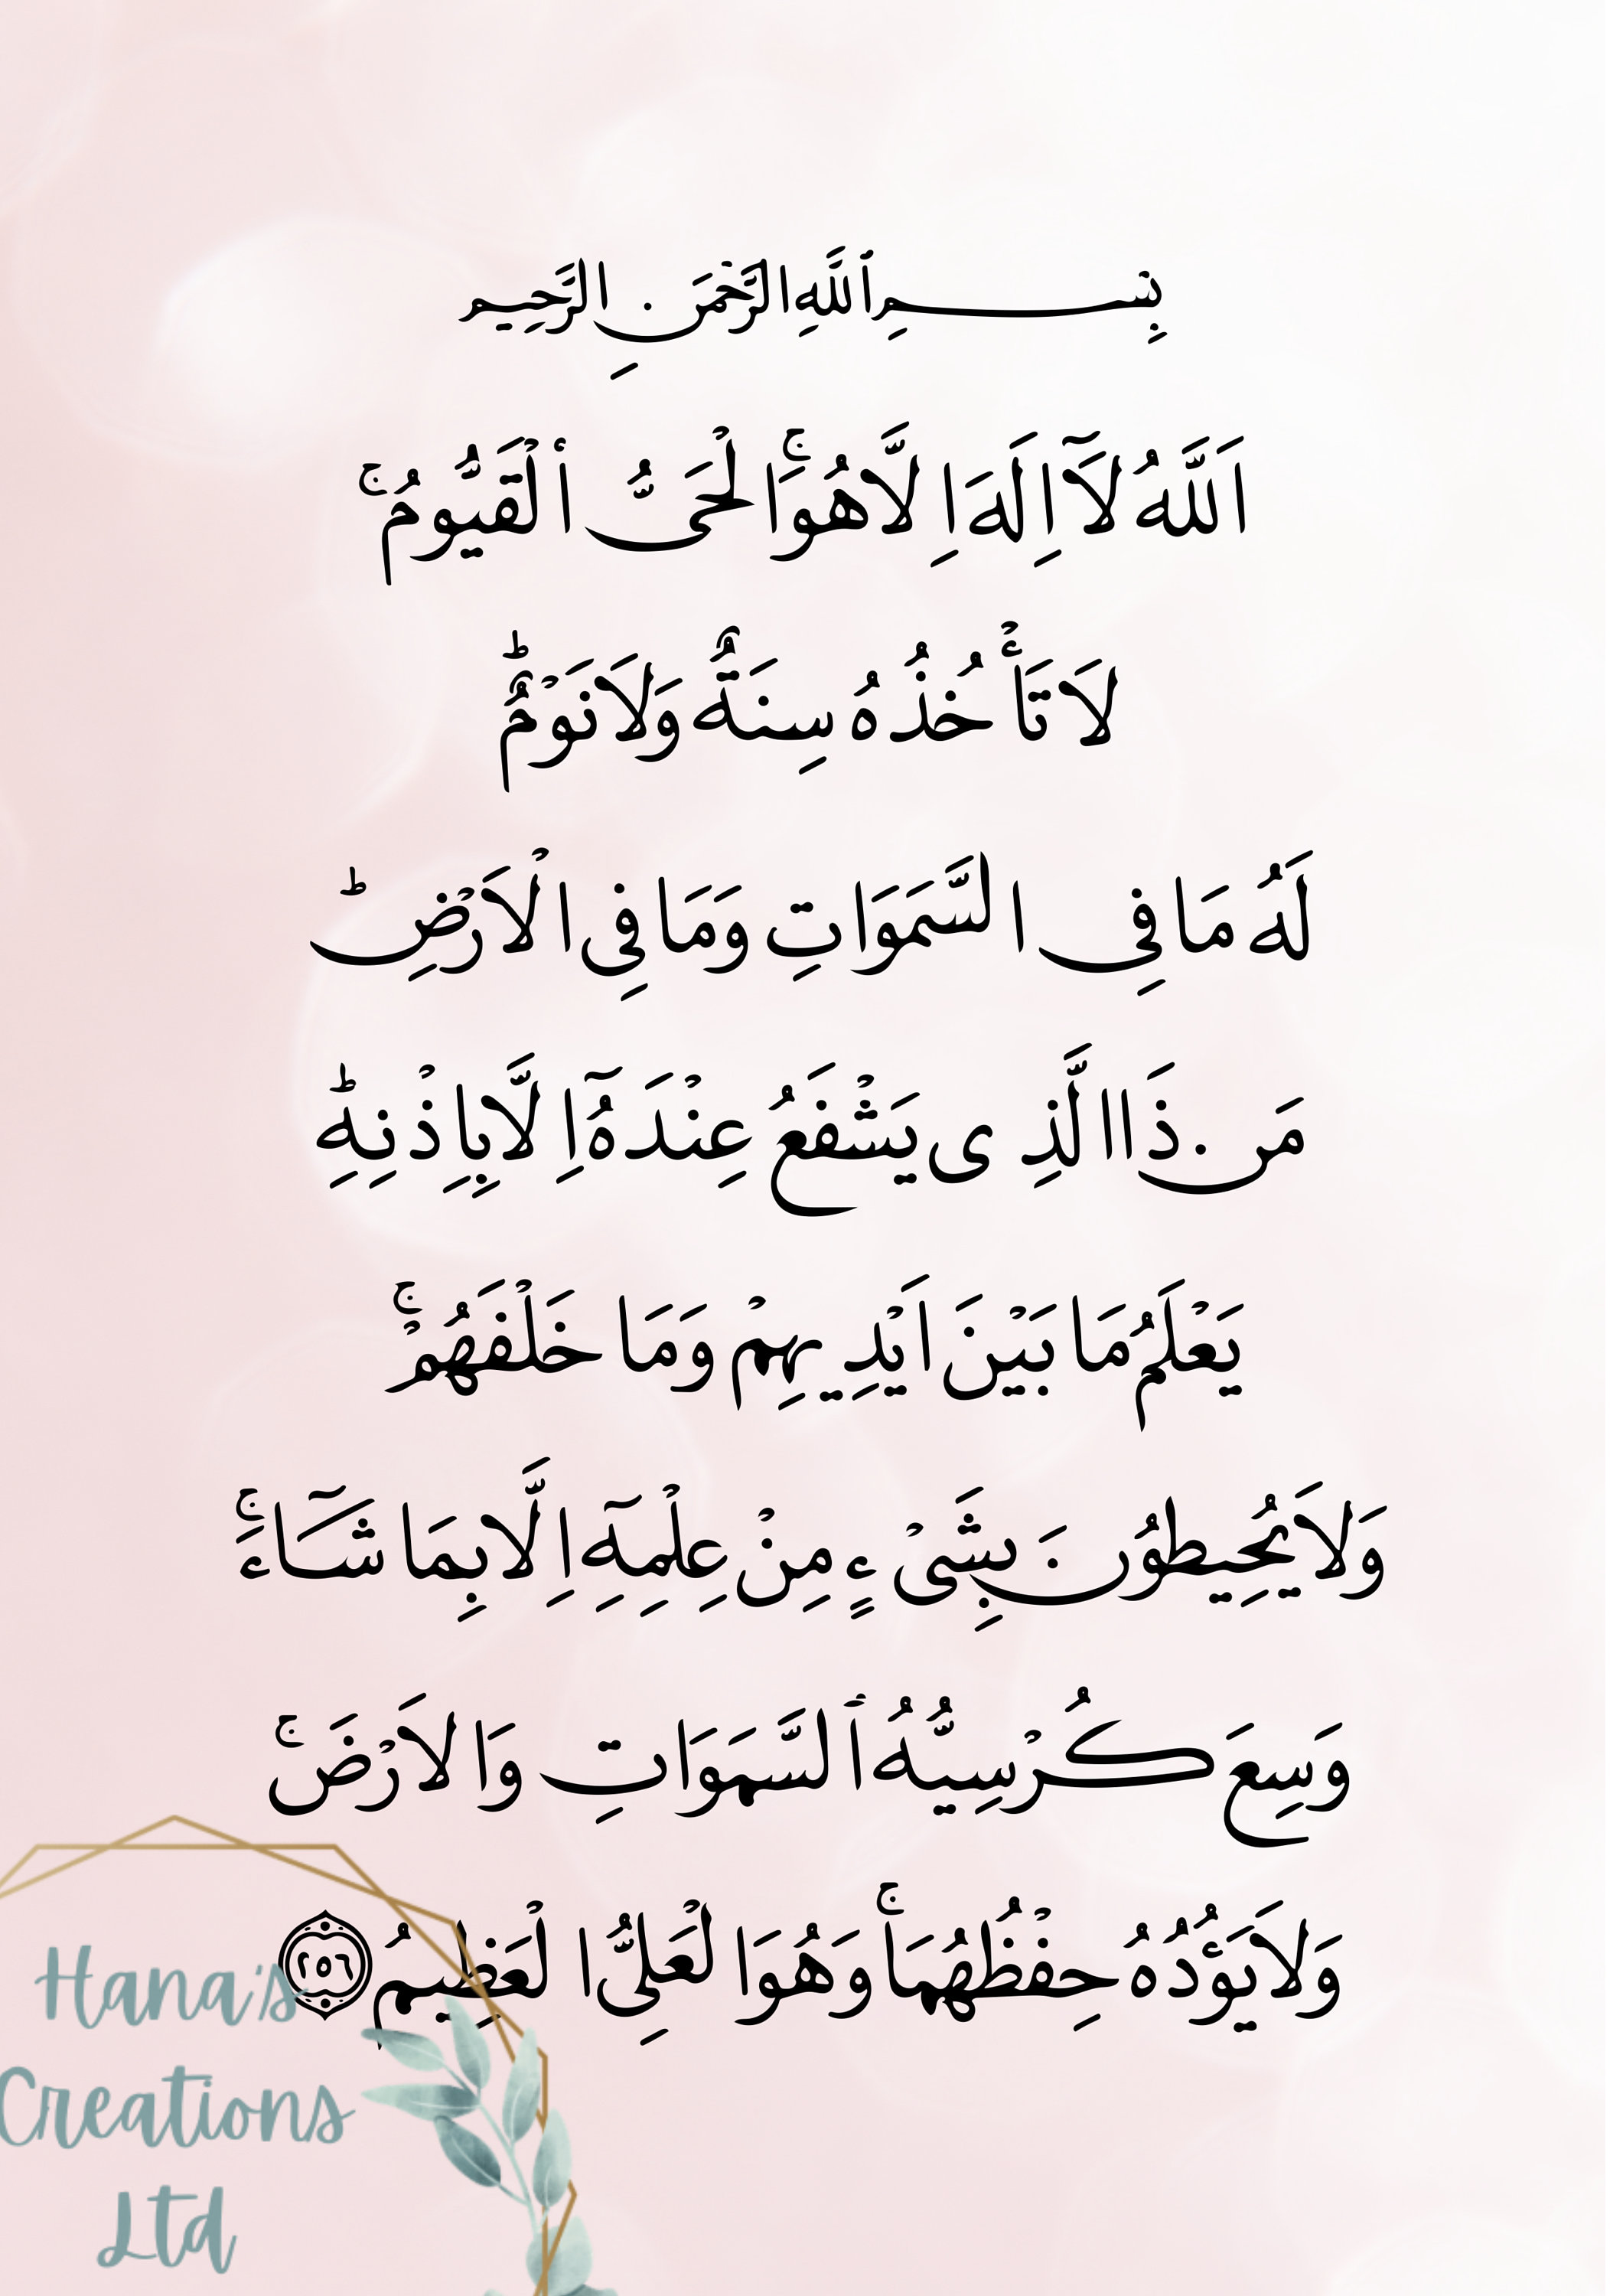 بِسْمِ ٱللَّهِ الرَّحْمَنِ الرَّحِيم
اَللَّهُ لَآ اِلَهَ اِلَّا هُوَۚ اَلْحَىُّ ٱلْقَيُّومُۚ
لَا تَأْخُذُهُ سِنَةٌ وَلَا نَوْمٌؕ
لَهُ مَا فِى السَّمَوَاتِ وَمَا فِى الْاَرْضِؕ
مَن ذَا الَّذِى يَشْفَعُ عِنْدَهُٓ اِلَّا بِاِذْنِهِؕ
يَعْلَمُ مَا بَيْنَ اَيْدِيهِمْ وَمَا خَلْفَهُمْۚ
وَلَا يُحِيطُوْنَ بِشَىْءٍ مِنْ عِلْمِهِٓ اِلَّا بِمَا شَآءَۚ
وَسِعَ كُرْسِيُّهُ ٱلسَّمَوَاتِ وَالاَرْضَۚ
وَلَا يَؤُدُهُ حِفْظُهُمَاۚ وَهُوَ الْعَلِىُّ الْعَظِيمُ ٢٥٦
Hana's
Creations
Ltd